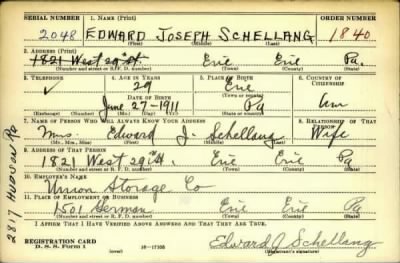 SERIAL NUMBER 1. NAME (Print) ORDER NUMBER
2048 EDWARD JOSEPH SCHELLANG 1840
(First) (Middle) (Last)
2. ADDRESS (Print)
1821 West 29th St. Erie Erie Pa.
(Number and street or R. F. D. number) (Town) (County) (State)
3. TELEPHONE 4. AGE IN YEARS 5. PLACE OF BIRTH 6. COUNTRY OF CITIZENSHIP
29 Erie
DATE OF BIRTH (Town or county)
June 27-1911 Pa Am
(Exchange) (Number) (Mo.) (Day) (Yr.) (State or country)
7. NAME OF PERSON WHO WILL ALWAYS KNOW YOUR ADDRESS 8. RELATIONSHIP OF THAT PERSON
Mrs. Edward J. Schellang Wife
(Mr., Mrs., Miss) (First) (Middle) (Last)
9. ADDRESS OF THAT PERSON
1821 West 29th St. Erie Erie Pa
(Number and street or R. F. D. number) (Town) (County) (State)
10. EMPLOYER'S NAME
Union Storage Co
11. PLACE OF EMPLOYMENT OR BUSINESS
1501 German Erie Erie Pa
(Number and street or R. F. D. number) (Town) (County) (State)
I AFFIRM THAT I HAVE VERIFIED ABOVE ANSWERS AND THAT THEY ARE TRUE.
REGISTRATION CARD
D. S. S. Form 1 16—17105 Edward J Schellang
2817 Hudson Rd